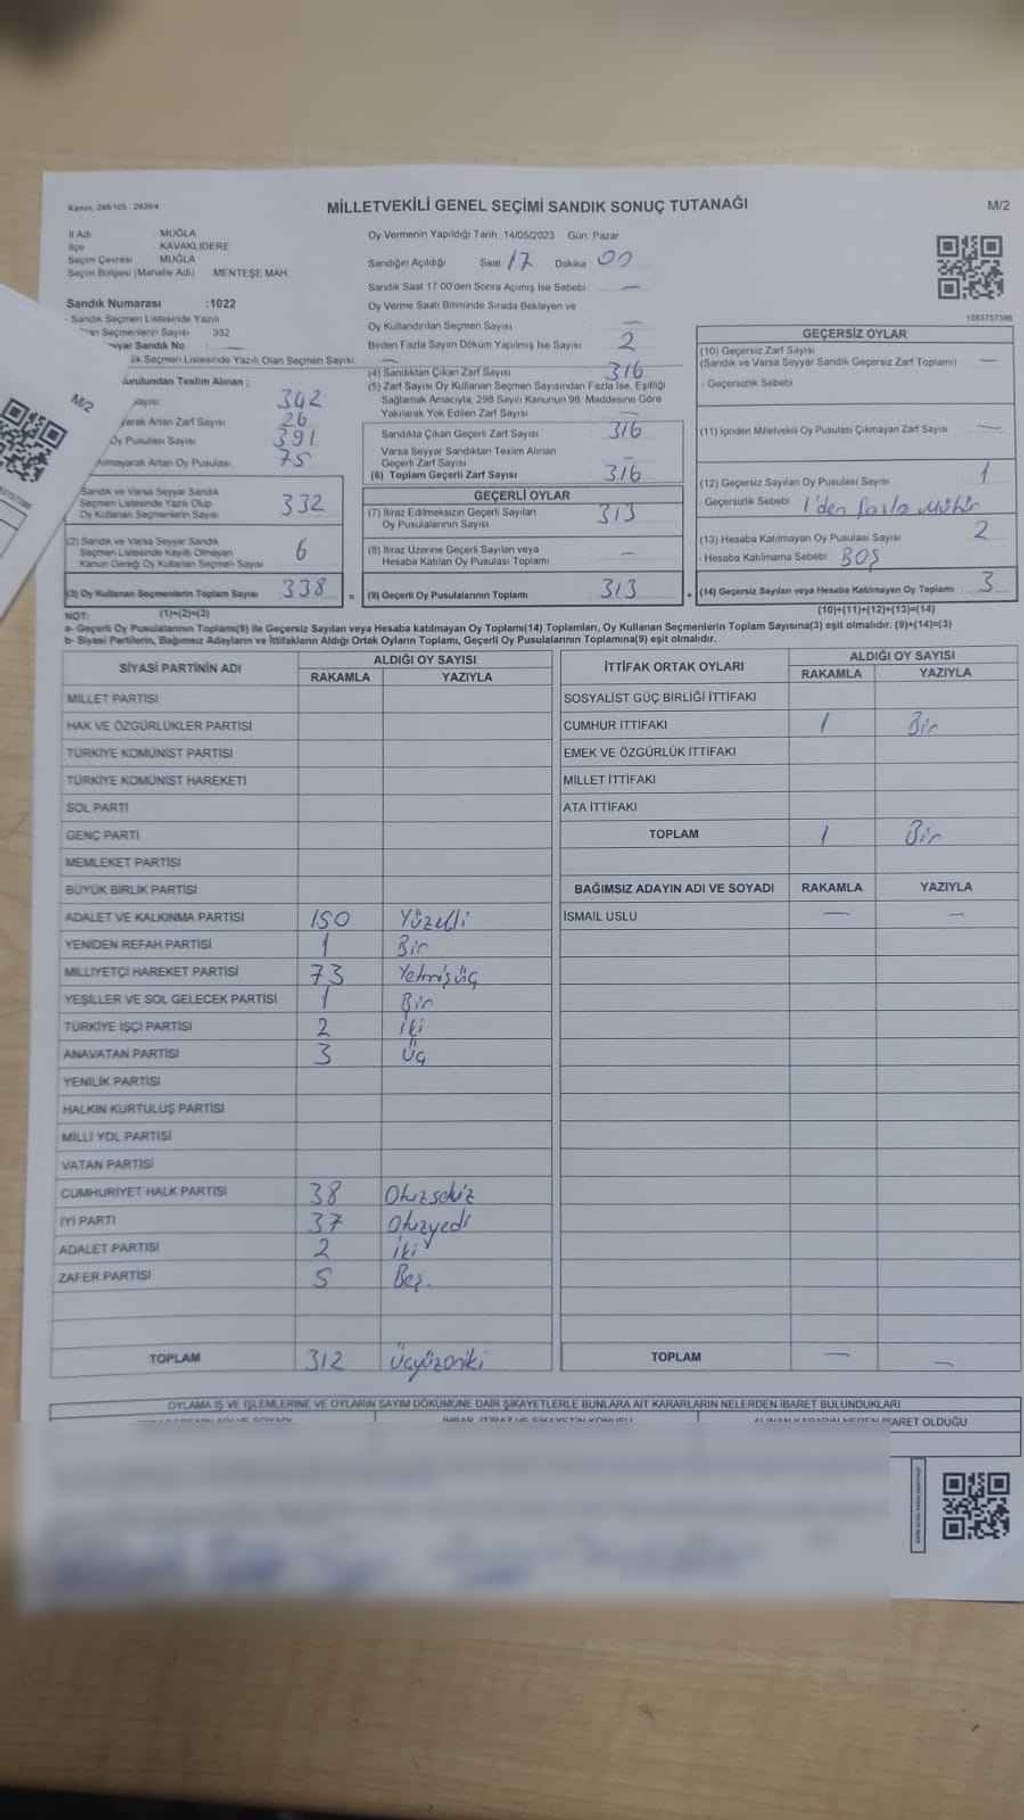 Kanun: 298/105 : 2839/4
MİLLETVEKİLİ GENEL SEÇİMİ SANDIK SONUÇ TUTANAĞI
M/2
İl Adı MUĞLA
İlçe KAVAKLIDERE
Seçim Çevresi MUĞLA
Seçim Bölgesi (Mahalle Adı) MENTEŞE MAH.
Sandık Numarası :1022
- Sandık Seçmen Listesinde Yazılı
Seçmenlerin Sayısı 332
Sandık No
Seçmen Listesinde Yazılı Olan Seçmen Sayısı
Teslim Alınan ;
342
Artan Zarf Sayısı 26
Oy Pusulası Sayısı 391
Artan Oy Pusulası 75
M/2
Sandık ve Varsa Seyyar Sandık
Seçmen Listesinde Yazılı Olup
Oy Kullanan Seçmenlerin Sayısı 332
(2) Sandık ve Varsa Seyyar Sandık
Seçmen Listesinde Kayıtlı Olmayan
Kanun Gereği Oy Kullanan Seçmen Sayısı 6
(3) Oy Kullanan Seçmenlerin Toplam Sayısı 338 =
Oy Vermenin Yapıldığı Tarih :14/05/2023 Gün: Pazar
Sandığın Açıldığı Saat 17 Dakika 00
Sandık Saat 17:00'den Sonra Açılmış İse Sebebi —
Oy Verme Saati Bitiminde Sırada Bekleyen ve
Oy Kullandırılan Seçmen Sayısı —
Birden Fazla Sayım Döküm Yapılmış İse Sayısı 2
(4) Sandıktan Çıkan Zarf Sayısı 316
(5) Zarf Sayısı Oy Kullanan Seçmen Sayısından Fazla İse, Eşitliği
Sağlamak Amacıyla, 298 Sayılı Kanunun 98. Maddesine Göre
Yakılarak Yok Edilen Zarf Sayısı —
Sandıkta Çıkan Geçerli Zarf Sayısı 316
Varsa Seyyar Sandıktan Teslim Alınan
Geçerli Zarf Sayısı —
(6) Toplam Geçerli Zarf Sayısı 316
GEÇERLİ OYLAR
(7) İtiraz Edilmeksizin Geçerli Sayılan
Oy Pusulalarının Sayısı 313
(8) İtiraz Üzerine Geçerli Sayılan veya
Hesaba Katılan Oy Pusulası Toplamı —
(9) Geçerli Oy Pusulalarının Toplamı 313 +
GEÇERSİZ OYLAR
(10) Geçersiz Zarf Sayısı
(Sandık ve Varsa Seyyar Sandık Geçersiz Zarf Toplamı) —
- Geçersizlik Sebebi
(11) İçinden Milletvekili Oy Pusulası Çıkmayan Zarf Sayısı —
(12) Geçersiz Sayılan Oy Pusulası Sayısı 1
Geçersizlik Sebebi 1'den fazla mühür
(13) Hesaba Katılmayan Oy Pusulası Sayısı 2
- Hesaba Katılmama Sebebi BOŞ
(14) Geçersiz Sayılan veya Hesaba Katılmayan Oy Toplamı 3
NOT: (1)+(2)=(3) (10)+(11)+(12)+(13)=(14)
a- Geçerli Oy Pusulalarının Toplamı(9) ile Geçersiz Sayılan veya Hesaba katılmayan Oy Toplamı(14) Toplamları, Oy Kullanan Seçmenlerin Toplam Sayısına(3) eşit olmalıdır. (9)+(14)=(3)
b- Siyasi Partilerin, Bağımsız Adayların ve İttifakların Aldığı Ortak Oyların Toplamı, Geçerli Oy Pusulalarının Toplamına(9) eşit olmalıdır.
SİYASİ PARTİNİN ADI ALDIĞI OY SAYISI
RAKAMLA YAZIYLA
MİLLET PARTİSİ
HAK VE ÖZGÜRLÜKLER PARTİSİ
TÜRKİYE KOMÜNİST PARTİSİ
TÜRKİYE KOMÜNİST HAREKETİ
SOL PARTİ
GENÇ PARTİ
MEMLEKET PARTİSİ
BÜYÜK BİRLİK PARTİSİ
ADALET VE KALKINMA PARTİSİ 150 Yüzelli
YENİDEN REFAH PARTİSİ 1 Bir
MİLLİYETÇİ HAREKET PARTİSİ 73 Yetmişüç
YEŞİLLER VE SOL GELECEK PARTİSİ 1 Bir
TÜRKİYE İŞÇİ PARTİSİ 2 İki
ANAVATAN PARTİSİ 3 Üç
YENİLİK PARTİSİ
HALKIN KURTULUŞ PARTİSİ
MİLLİ YOL PARTİSİ
VATAN PARTİSİ
CUMHURİYET HALK PARTİSİ 38 Otuzsekiz
İYİ PARTİ 37 Otuzyedi
ADALET PARTİSİ 2 İki
ZAFER PARTİSİ 5 Beş.
TOPLAM 312 Üçyüzoniki
İTTİFAK ORTAK OYLARI ALDIĞI OY SAYISI
RAKAMLA YAZIYLA
SOSYALİST GÜÇ BİRLİĞİ İTTİFAKI
CUMHUR İTTİFAKI 1 Bir
EMEK VE ÖZGÜRLÜK İTTİFAKI
MİLLET İTTİFAKI
ATA İTTİFAKI
TOPLAM 1 Bir
BAĞIMSIZ ADAYIN ADI VE SOYADI RAKAMLA YAZIYLA
İSMAİL USLU — —
TOPLAM — —
OYLAMA İŞ VE İŞLEMLERİNE VE OYLARIN SAYIM DÖKÜMÜNE DAİR ŞİKAYETLERLE BUNLARA AİT KARARLARIN NELERDEN İBARET BULUNDUKLARI
İBARET OLDUĞU